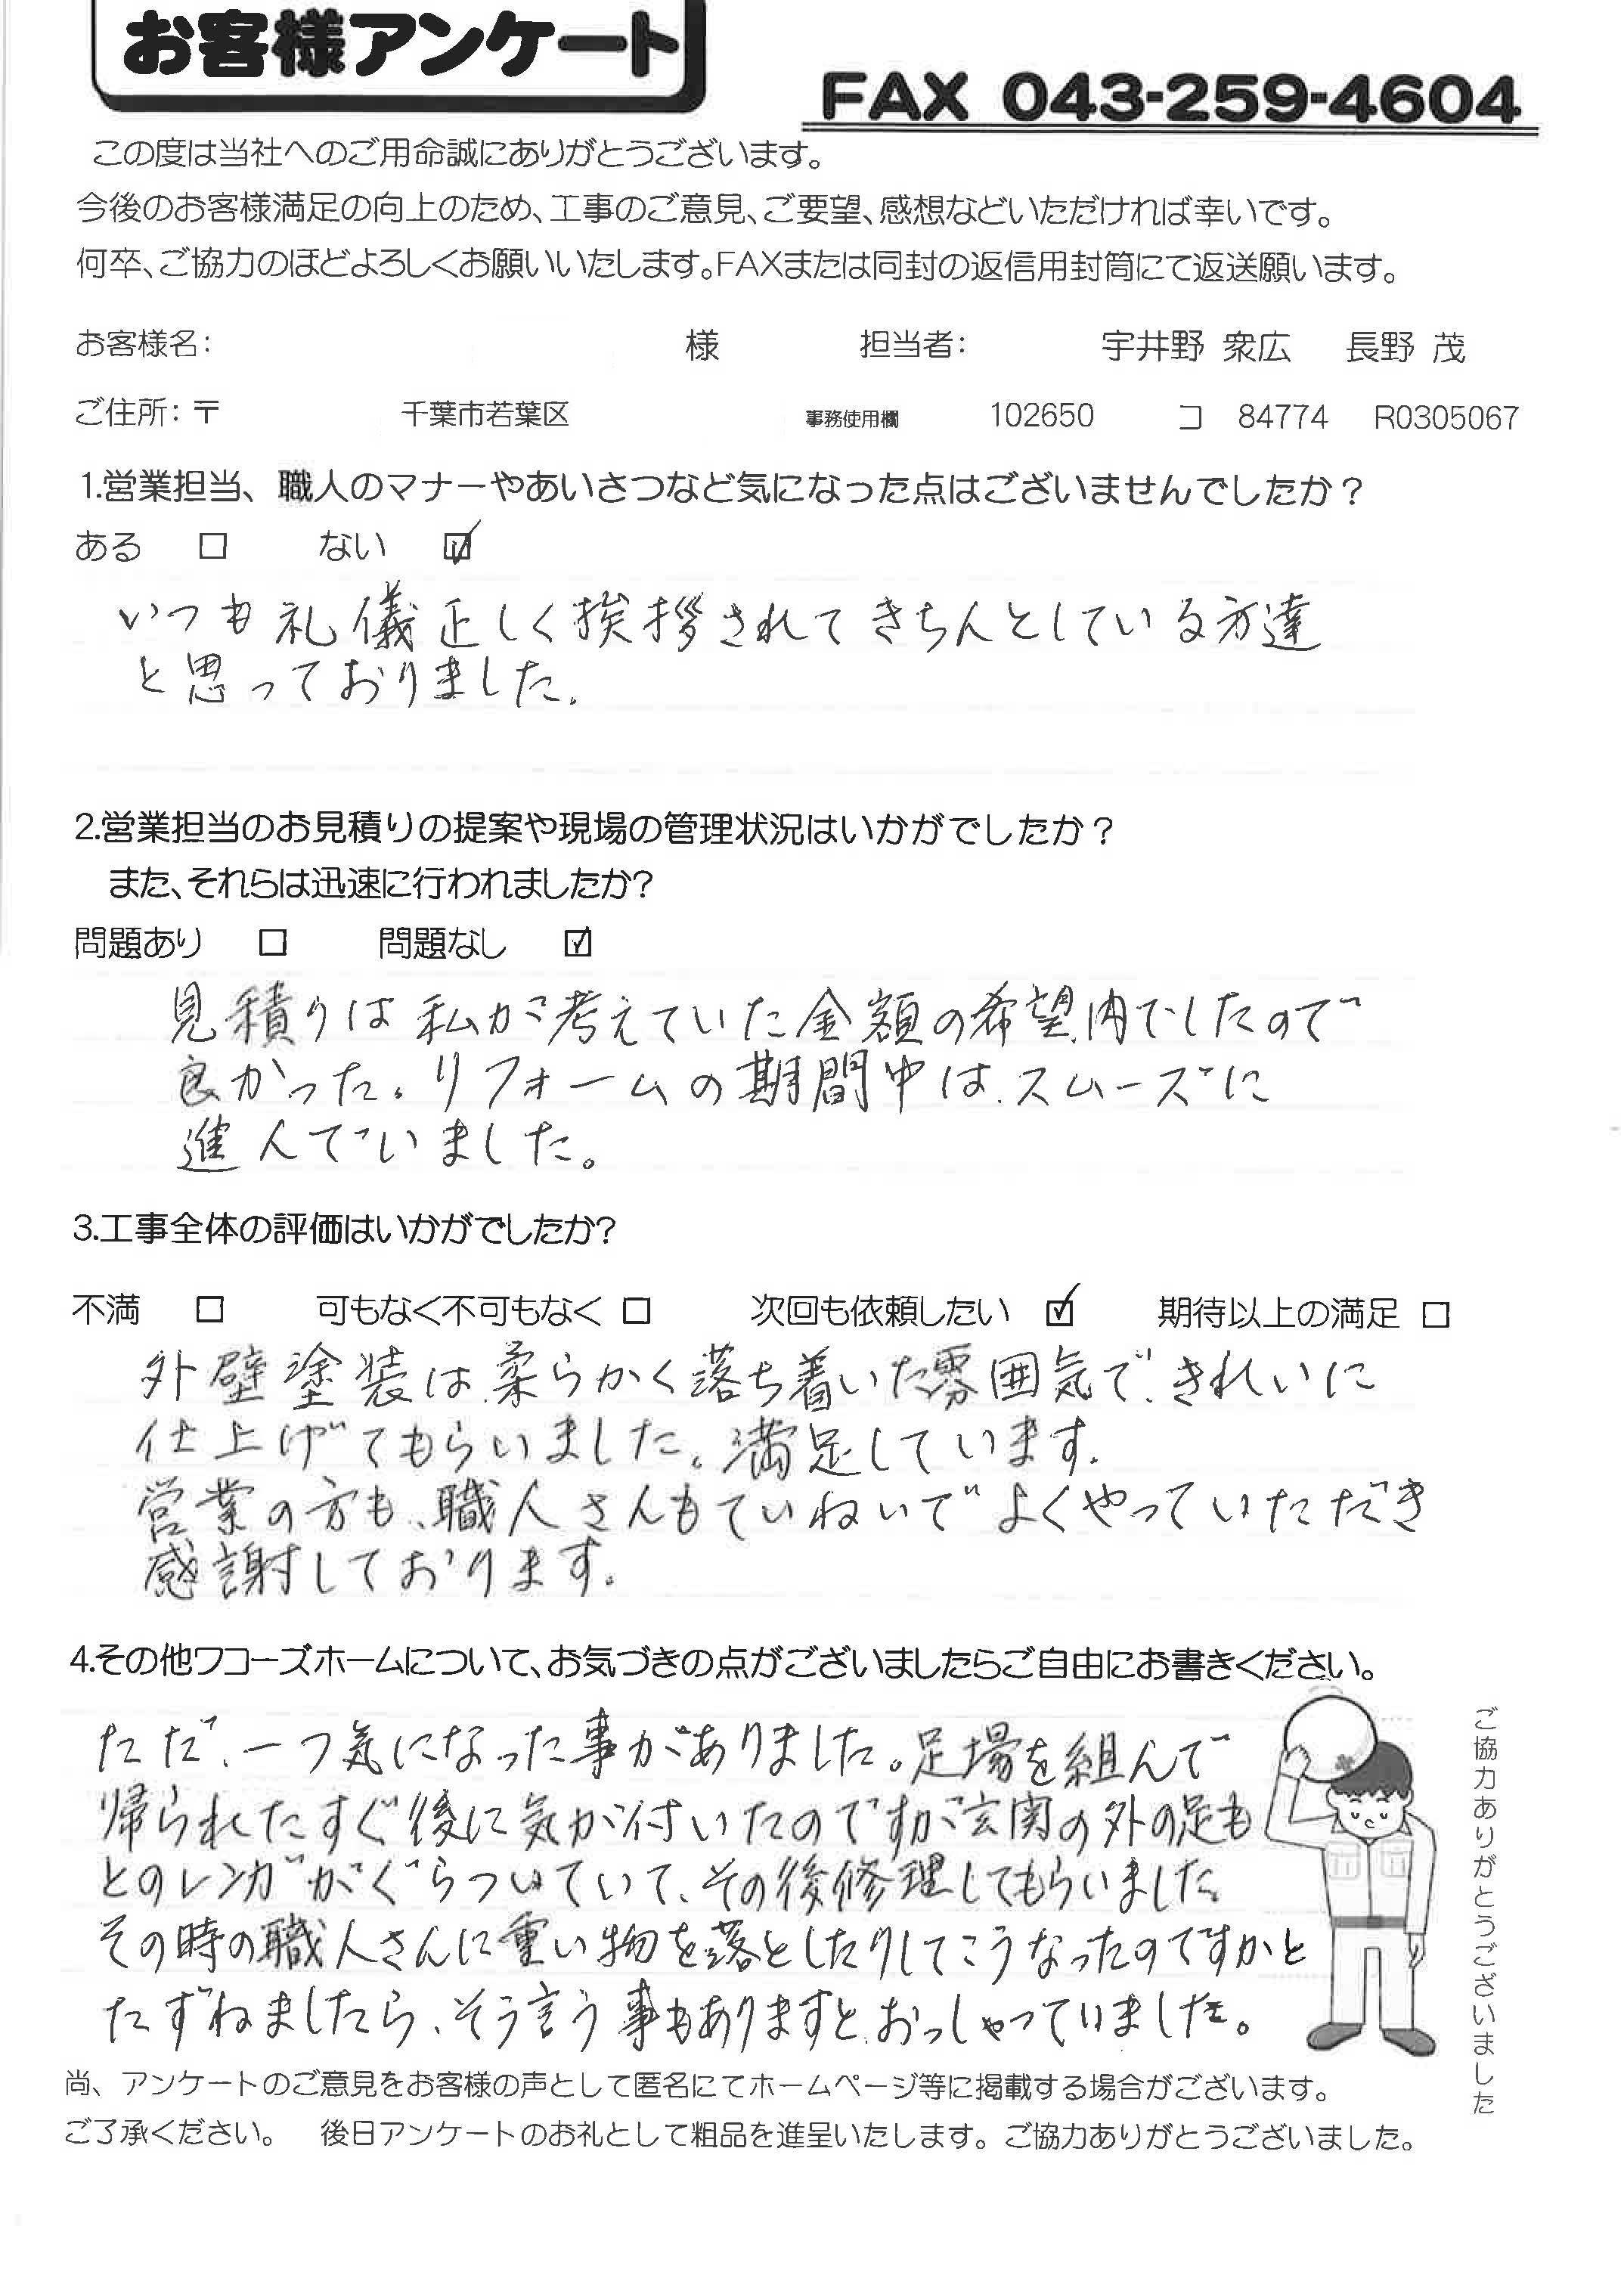 お客様アンケート
FAX 043-259-4604
この度は当社へのご用命誠にありがとうございます。
今後のお客様満足の向上のため、工事のご意見、ご要望、感想などいただければ幸いです。
何卒、ご協力のほどよろしくお願いいたします。FAXまたは同封の返信用封筒にて返送願います。
お客様名: 様 担当者: 宇井野 衆広 長野 茂
ご住所:〒 千葉市若葉区 事務使用欄 102650 コ 84774 R0305067
1.営業担当、職人のマナーやあいさつなど気になった点はございませんでしたか?
ある □ ない ☑
いつも礼儀正しく挨拶されてきちんとしている方達
と思っておりました。
2.営業担当のお見積りの提案や現場の管理状況はいかがでしたか?
また、それらは迅速に行われましたか?
問題あり □ 問題なし ☑
見積りは私が考えていた金額の希望内でしたので
良かった。リフォームの期間中は、スムーズに
進んでいました。
3.工事全体の評価はいかがでしたか?
不満 □ 可もなく不可もなく □ 次回も依頼したい ☑ 期待以上の満足 □
外壁塗装は、柔らかく落ち着いた雰囲気で、きれいに
仕上げてもらいました。満足しています。
営業の方も、職人さんもていねいでよくやっていただき
感謝しております。
4.その他ワコーズホームについて、お気づきの点がございましたらご自由にお書きください。
ただ、一つ気になった事がありました。足場を組んで
帰られたすぐ後に気が付いたのですが玄関の外の足も
とのレンガがぐらついていて、その後修理してもらいました。
その時の職人さんに重い物を落としたりしてこうなったのですかと
たずねましたら、そう言う事もありますと、おっしゃっていました。
ご協力ありがとうございました
尚、アンケートのご意見をお客様の声として匿名にてホームページ等に掲載する場合がございます。
ご了承ください。 後日アンケートのお礼として粗品を進呈いたします。ご協力ありがとうございました。